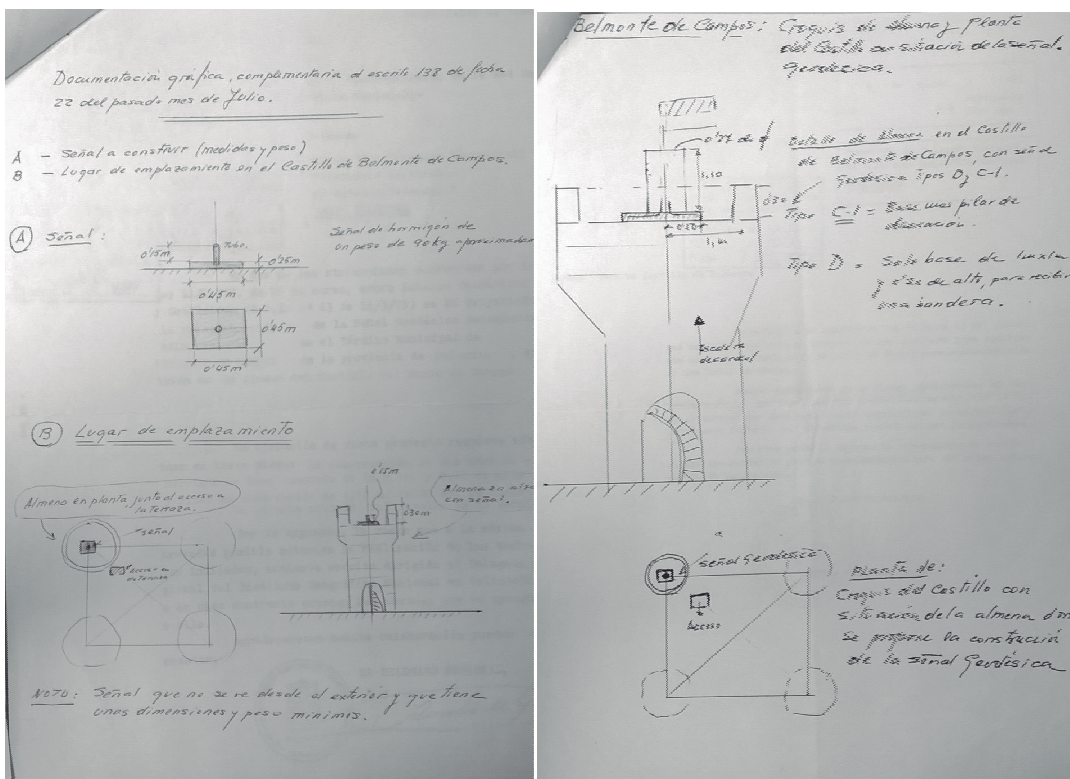 Documentación gráfica, complementaria al escrito 138 de fecha
22 del pasado mes de Julio.
A - Señal a construir (medidas y peso)
B - Lugar de emplazamiento en el Castillo de Belmonte de Campos.
A Señal:
Tubo.
0'15m
0'25m
0'45m
0'45m
0'45m
Señal de hormigón de
un peso de 90 kg aproximadam
B Lugar de emplazamiento
Almena en planta, junto al acceso a
la terraza.
señal
0'15m
0'30m
Almena en
con señal.
NOTA: Señal que no se ve desde el exterior y que tiene
unas dimensiones y peso mínimos.
Belmonte de Campos: Croquis de Almena y Planta
del Castillo con situación de la señal.
Geodésica.
Detalle de Almena en el Castillo
de Belmonte de Campos, con señal
Geodésica Tipos D y C-1.
Tipo C-1 = Base mas pilar de
Tipo D = Solo base de
de alto, para recibir
una bandera.
Escalera
de caracol
señal Geodésica
Acceso
Planta de:
Croquis del Castillo con
situación de la almena don
se propone la construcción
de la señal Geodésica